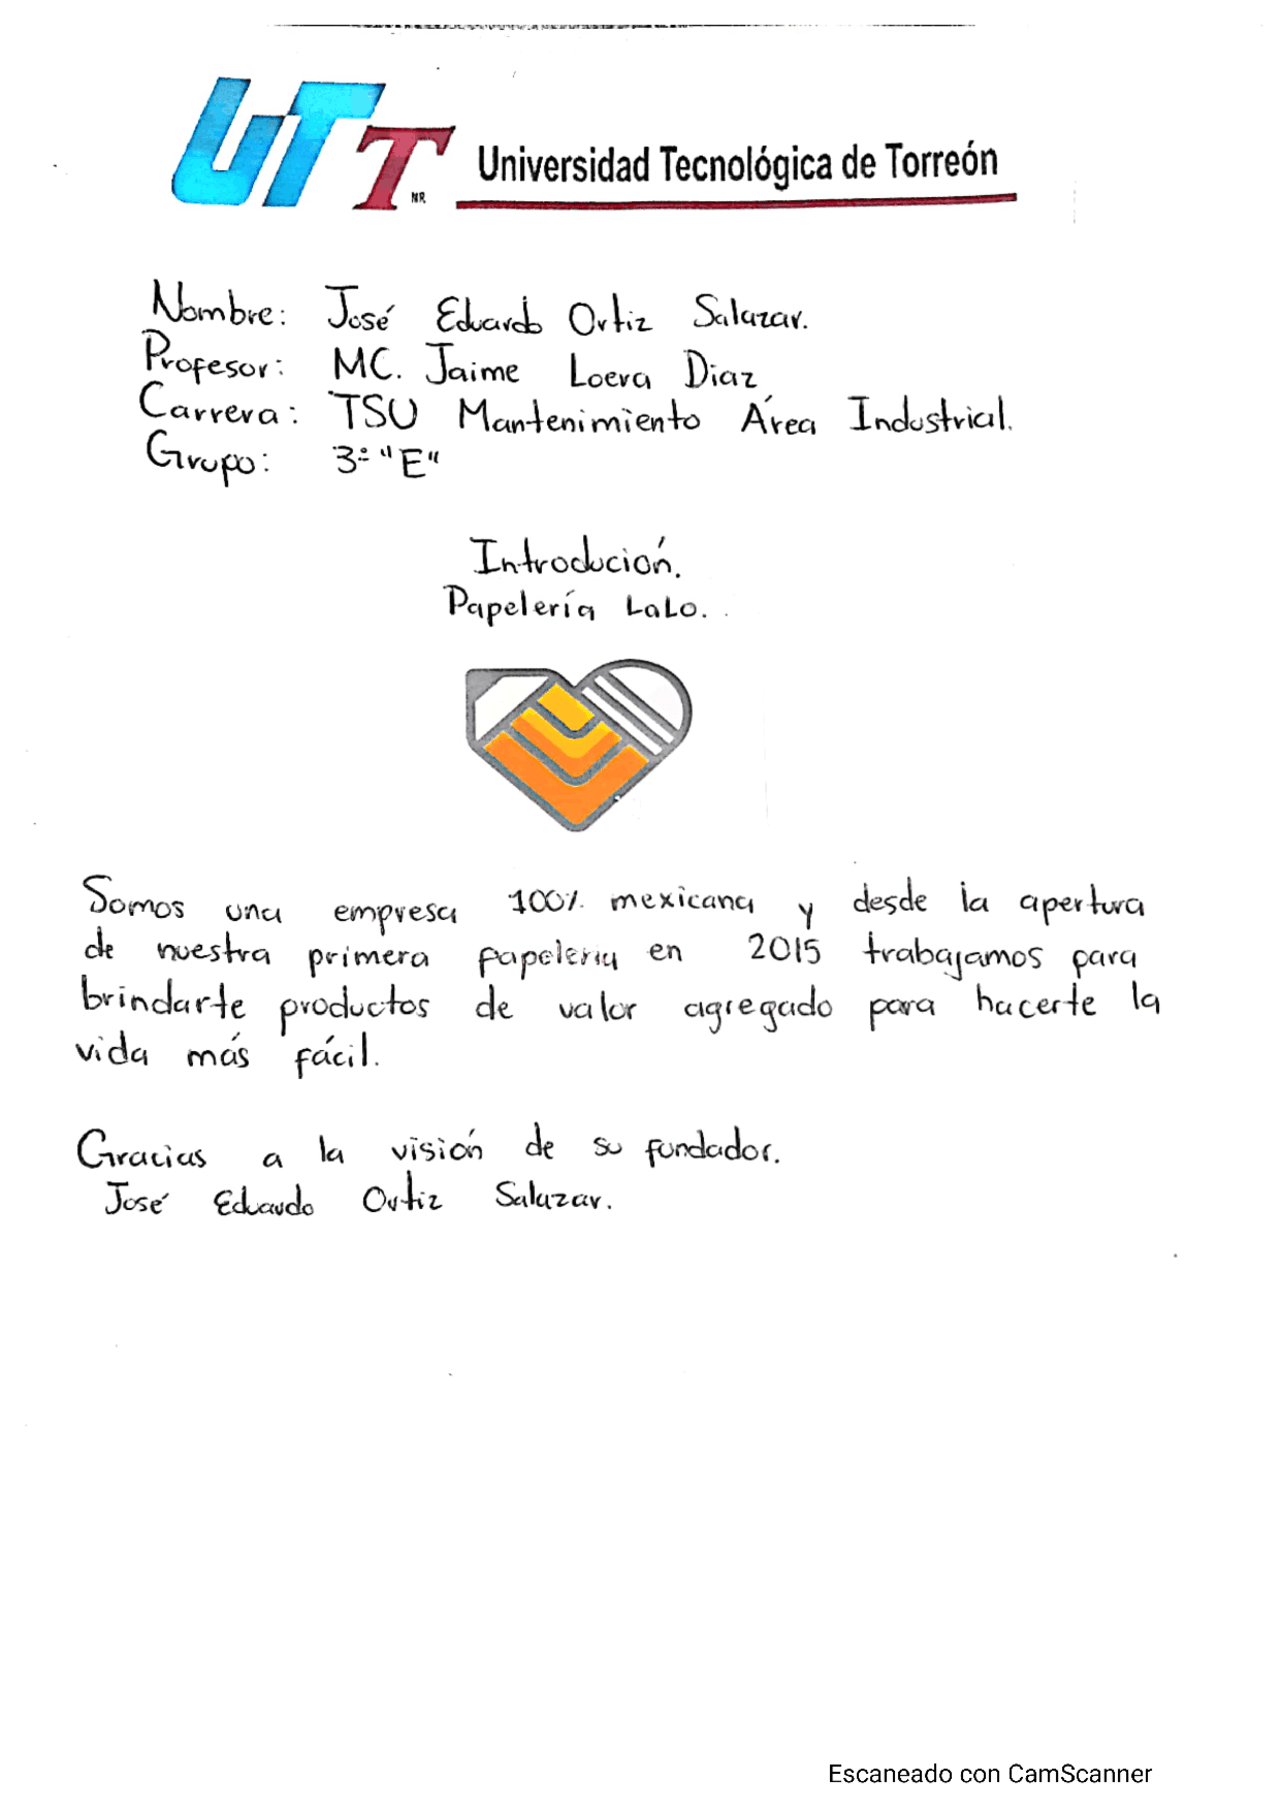 UTT NR Universidad Tecnológica de Torreón
Nombre: José Eduardo Ortiz Salazar.
Profesor: MC. Jaime Loera Diaz
Carrera: TSU Mantenimiento Área Industrial.
Grupo: 3º "E"
Introdución.
Papelería LaLo.
Somos una empresa 100% mexicana y desde la apertura
de nuestra primera papeleria en 2015 trabajamos para
brindarte productos de valor agregado para hacerte la
vida más fácil.
Gracias a la visión de su fundador.
José Eduardo Ortiz Salazar.
Escaneado con CamScanner